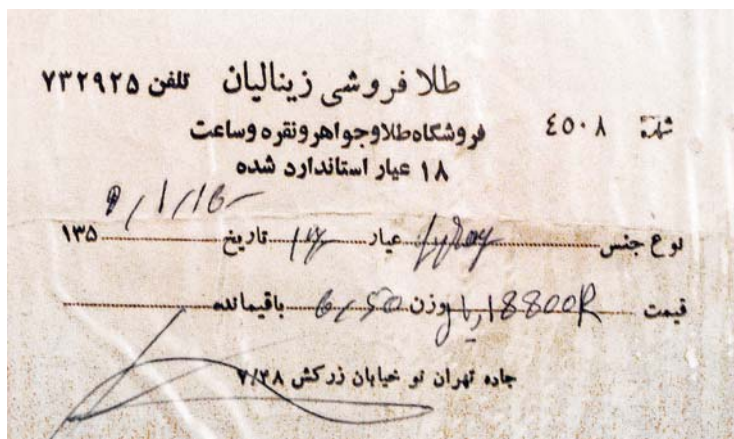 طلا فروشی زینالیان تلفن ۷۳۲۹۲۵
شماره ٤٥٠٨
فروشگاه طلا و جواهر و نقره و ساعت
۱۸ عیار استاندارد شده
نوع جنس عیار ۱۸ تاریخ ۱۳۵
قیمت 18800R ریال وزن 6/50 باقیمانده
جاده تهران نو خیابان زرکش ۷/۳۸